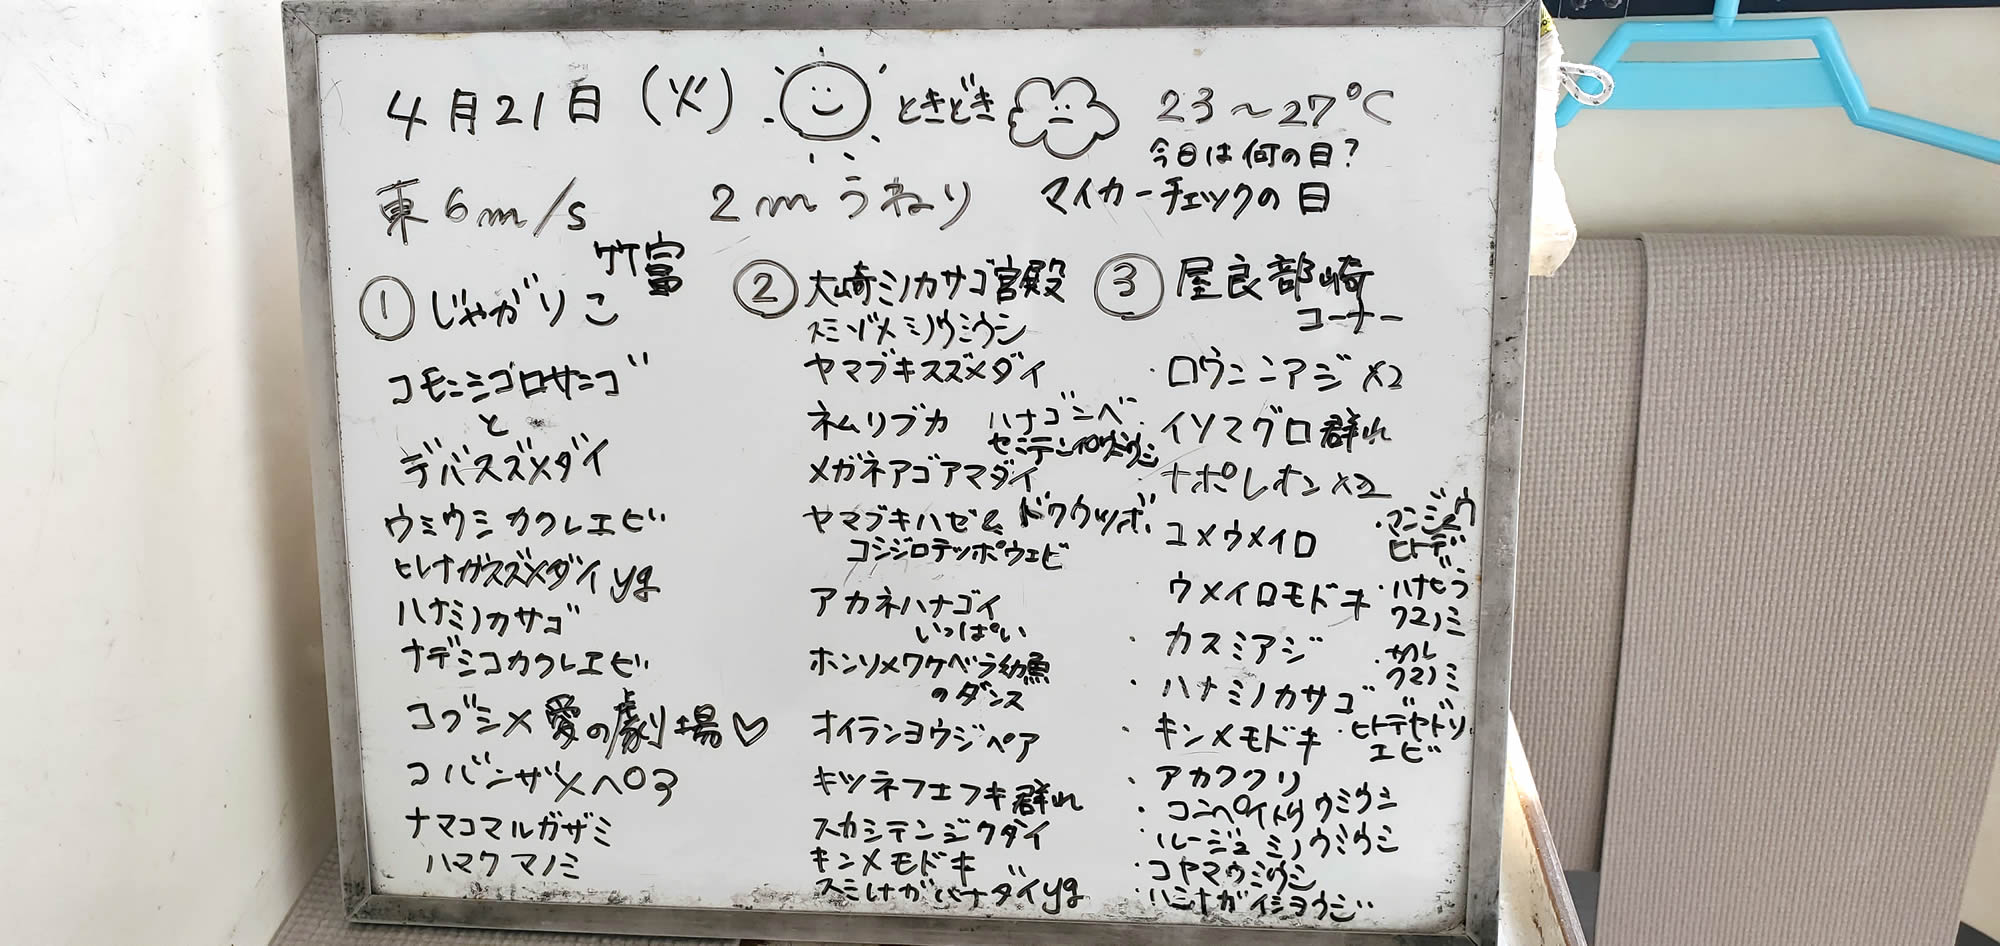 4月21日(火) ときどき 23〜27℃
今日は何の日?
東6m/s 2mうねり マイカーチェックの日
① じゃがりこ 竹富
コモンシコロサンゴ
と
デバスズメダイ
ウミウシカクレエビ
ヒレナガスズメダイyg
ハナミノカサゴ
ナデシコカクレエビ
コブシメ愛の劇場♡
コバンザメペロ3
ナマコマルガザミ
ハマクマノミ
② 大崎ミノカサゴ宮殿
スミゾメミノウミウシ
ヤマブキスズメダイ
ネムリブカ ハナゴンベ
セミテンイロウミウシ
メガネアゴアマダイ
ヤマブキハゼ& ドクウツボ
コシジロテッポウエビ
アカネハナゴイ
いっぱい
ホンソメワケベラ幼魚
のダンス
オイランヨウジペア
キツネフエフキ群れ
スカシテンジクダイ
キンメモドキ
スミレナガハナダイyg
③ 屋良部崎
コーナー
・ロウニンアジ×2
・イソマグロ群れ
・ナポレオン×2
ユメウメイロ
ウメイロモドキ
・カスミアジ
・ハナミノカサゴ
・キンメモドキ
・アカククリ
・コンペイトウウミウシ
・ルージュミノウミウシ
・コヤマウミウシ
・ハシナガイショウジ
・マンジュウ
ヒトデ
・ハナビラ
クマノミ
・カクレ
クマノミ
・ヒトデヤドリ
エビ